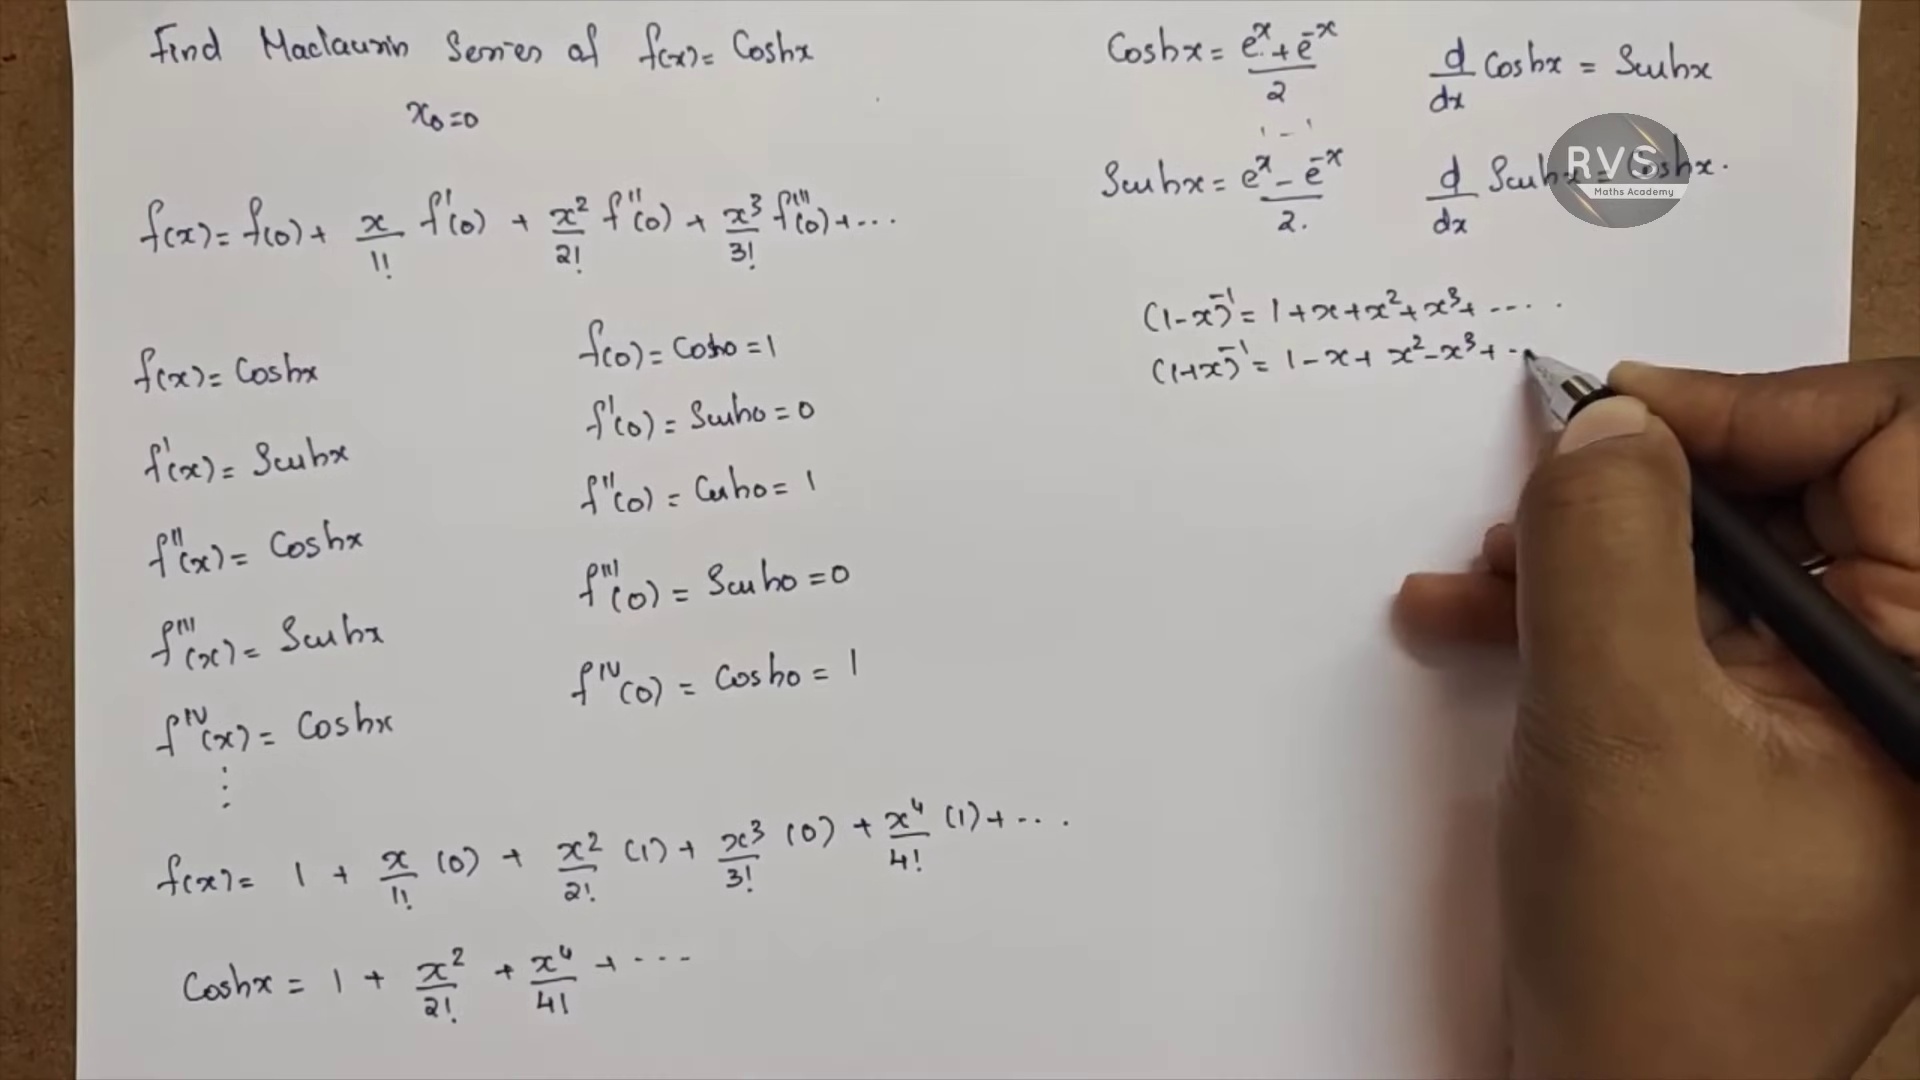 Find Maclaurin Series of f(x) = Coshx
x₀=0
f(x) = f(0) + x/1! f'(0) + x²/2! f''(0) + x³/3! f'''(0) + ...
f(x) = Coshx
f'(x) = Sinhx
f''(x) = Coshx
f'''(x) = Sinhx
f^IV(x) = Coshx
⋮
f(0) = Cosh0 = 1
f'(0) = Sinh0 = 0
f''(0) = Cosh0 = 1
f'''(0) = Sinh0 = 0
f^IV(0) = Cosh0 = 1
f(x) = 1 + x/1! (0) + x²/2! (1) + x³/3! (0) + x⁴/4! (1) + ...
Coshx = 1 + x²/2! + x⁴/4! + ...
Coshx = (e^x + e^-x)/2
d/dx Coshx = Sinhx
Sinhx = (e^x - e^-x)/2.
d/dx Sinhx = Coshx.
RVS
Maths Academy
(1-x)^-1 = 1+x+x²+x³+ ....
(1+x)^-1 = 1-x+x²-x³+ ..